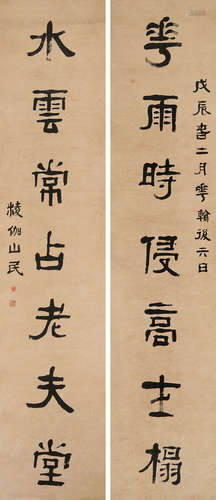 戊辰旾二月華朝後六日
華雨時侵高士榻
水雲常占老夫堂
楞伽山民